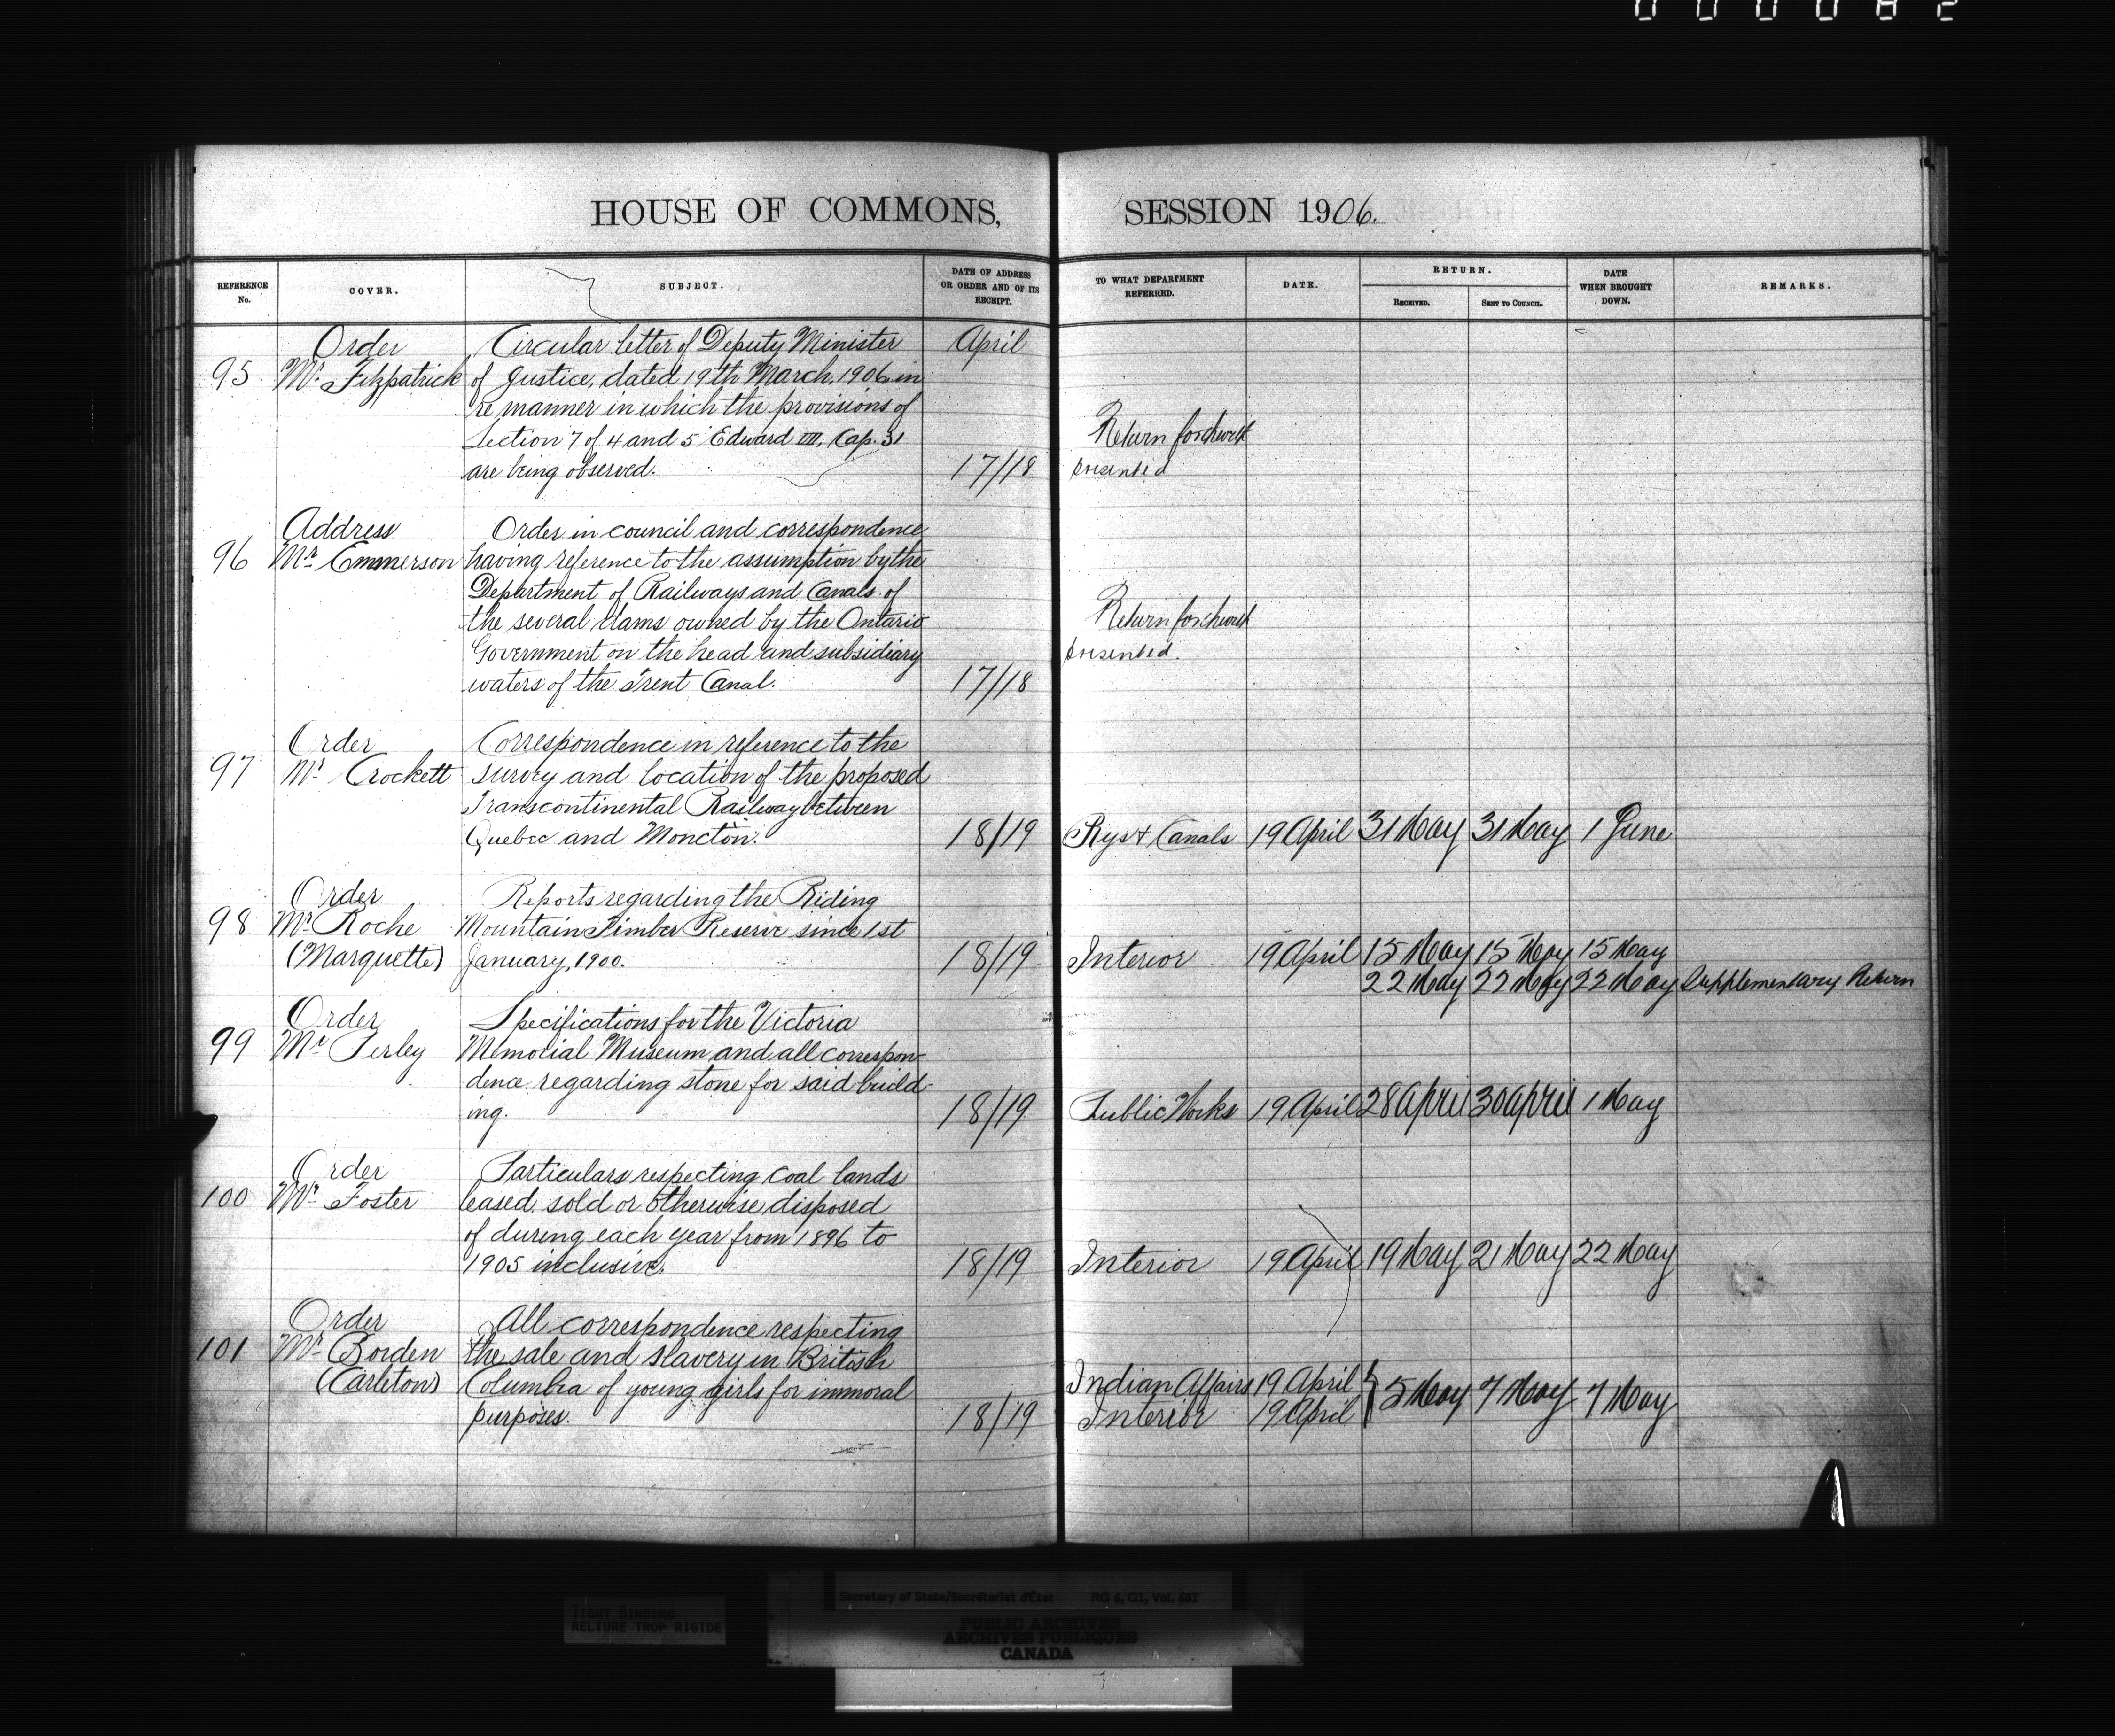 000082
HOUSE OF COMMONS, SESSION 1906.
REFERENCE No. COVER. SUBJECT. DATE OF ADDRESS OR ORDER AND OF ITS RECEIPT. TO WHAT DEPARTMENT REFERRED. DATE. RETURN. RECEIVED. SENT TO COUNCIL. DATE WHEN BROUGHT DOWN. REMARKS.
Order Circular letter of Deputy Minister April
95 Mr. Fitzpatrick of Justice, dated 19th March, 1906 in
re manner in which the provisions of
Section 7 of 4 and 5 Edward VII, Cap. 31 Return forthwith
are being observed. 17/18 presented
Address Order in council and correspondence
96 Mr. Emmerson having reference to the assumption by the
Department of Railways and Canals of
the several dams owned by the Ontario Return forthwith
Government on the head and subsidiary presented.
waters of the Trent Canal. 17/18
Order Correspondence in reference to the
97 Mr. Crockett survey and location of the proposed
Transcontinental Railway between
Quebec and Moncton. 18/19 Rys & Canals 19 April 31 May 31 May 1 June
Order Reports regarding the Riding
98 Mr. Roche Mountain Timber Reserve since 1st
(Marquette) January, 1900. 18/19 Interior 19 April 15 May 15 May 15 May
22 May 22 May 22 May Supplementary Return
Order Specifications for the Victoria
99 Mr. Perley Memorial Museum and all correspon-
dence regarding stone for said build-
ing. 18/19 Public Works 19 April 28 April 30 April 1 May
Order Particulars respecting coal lands
100 Mr. Foster leased, sold or otherwise disposed
of during each year from 1896 to
1905 inclusive. 18/19 Interior 19 April 19 May 21 May 22 May
Order All correspondence respecting
101 Mr. Borden the sale and slavery in British
(Carleton) Columbia of young girls for immoral Indian Affairs 19 April 5 May 7 May 7 May
purposes. 18/19 Interior 19 April
TIGHT BINDING
RELIURE TROP RIGIDE
Secretary of State/Secrétariat d'État RG 6, G1, Vol. 681
PUBLIC ARCHIVES
ARCHIVES PUBLIQUES
CANADA